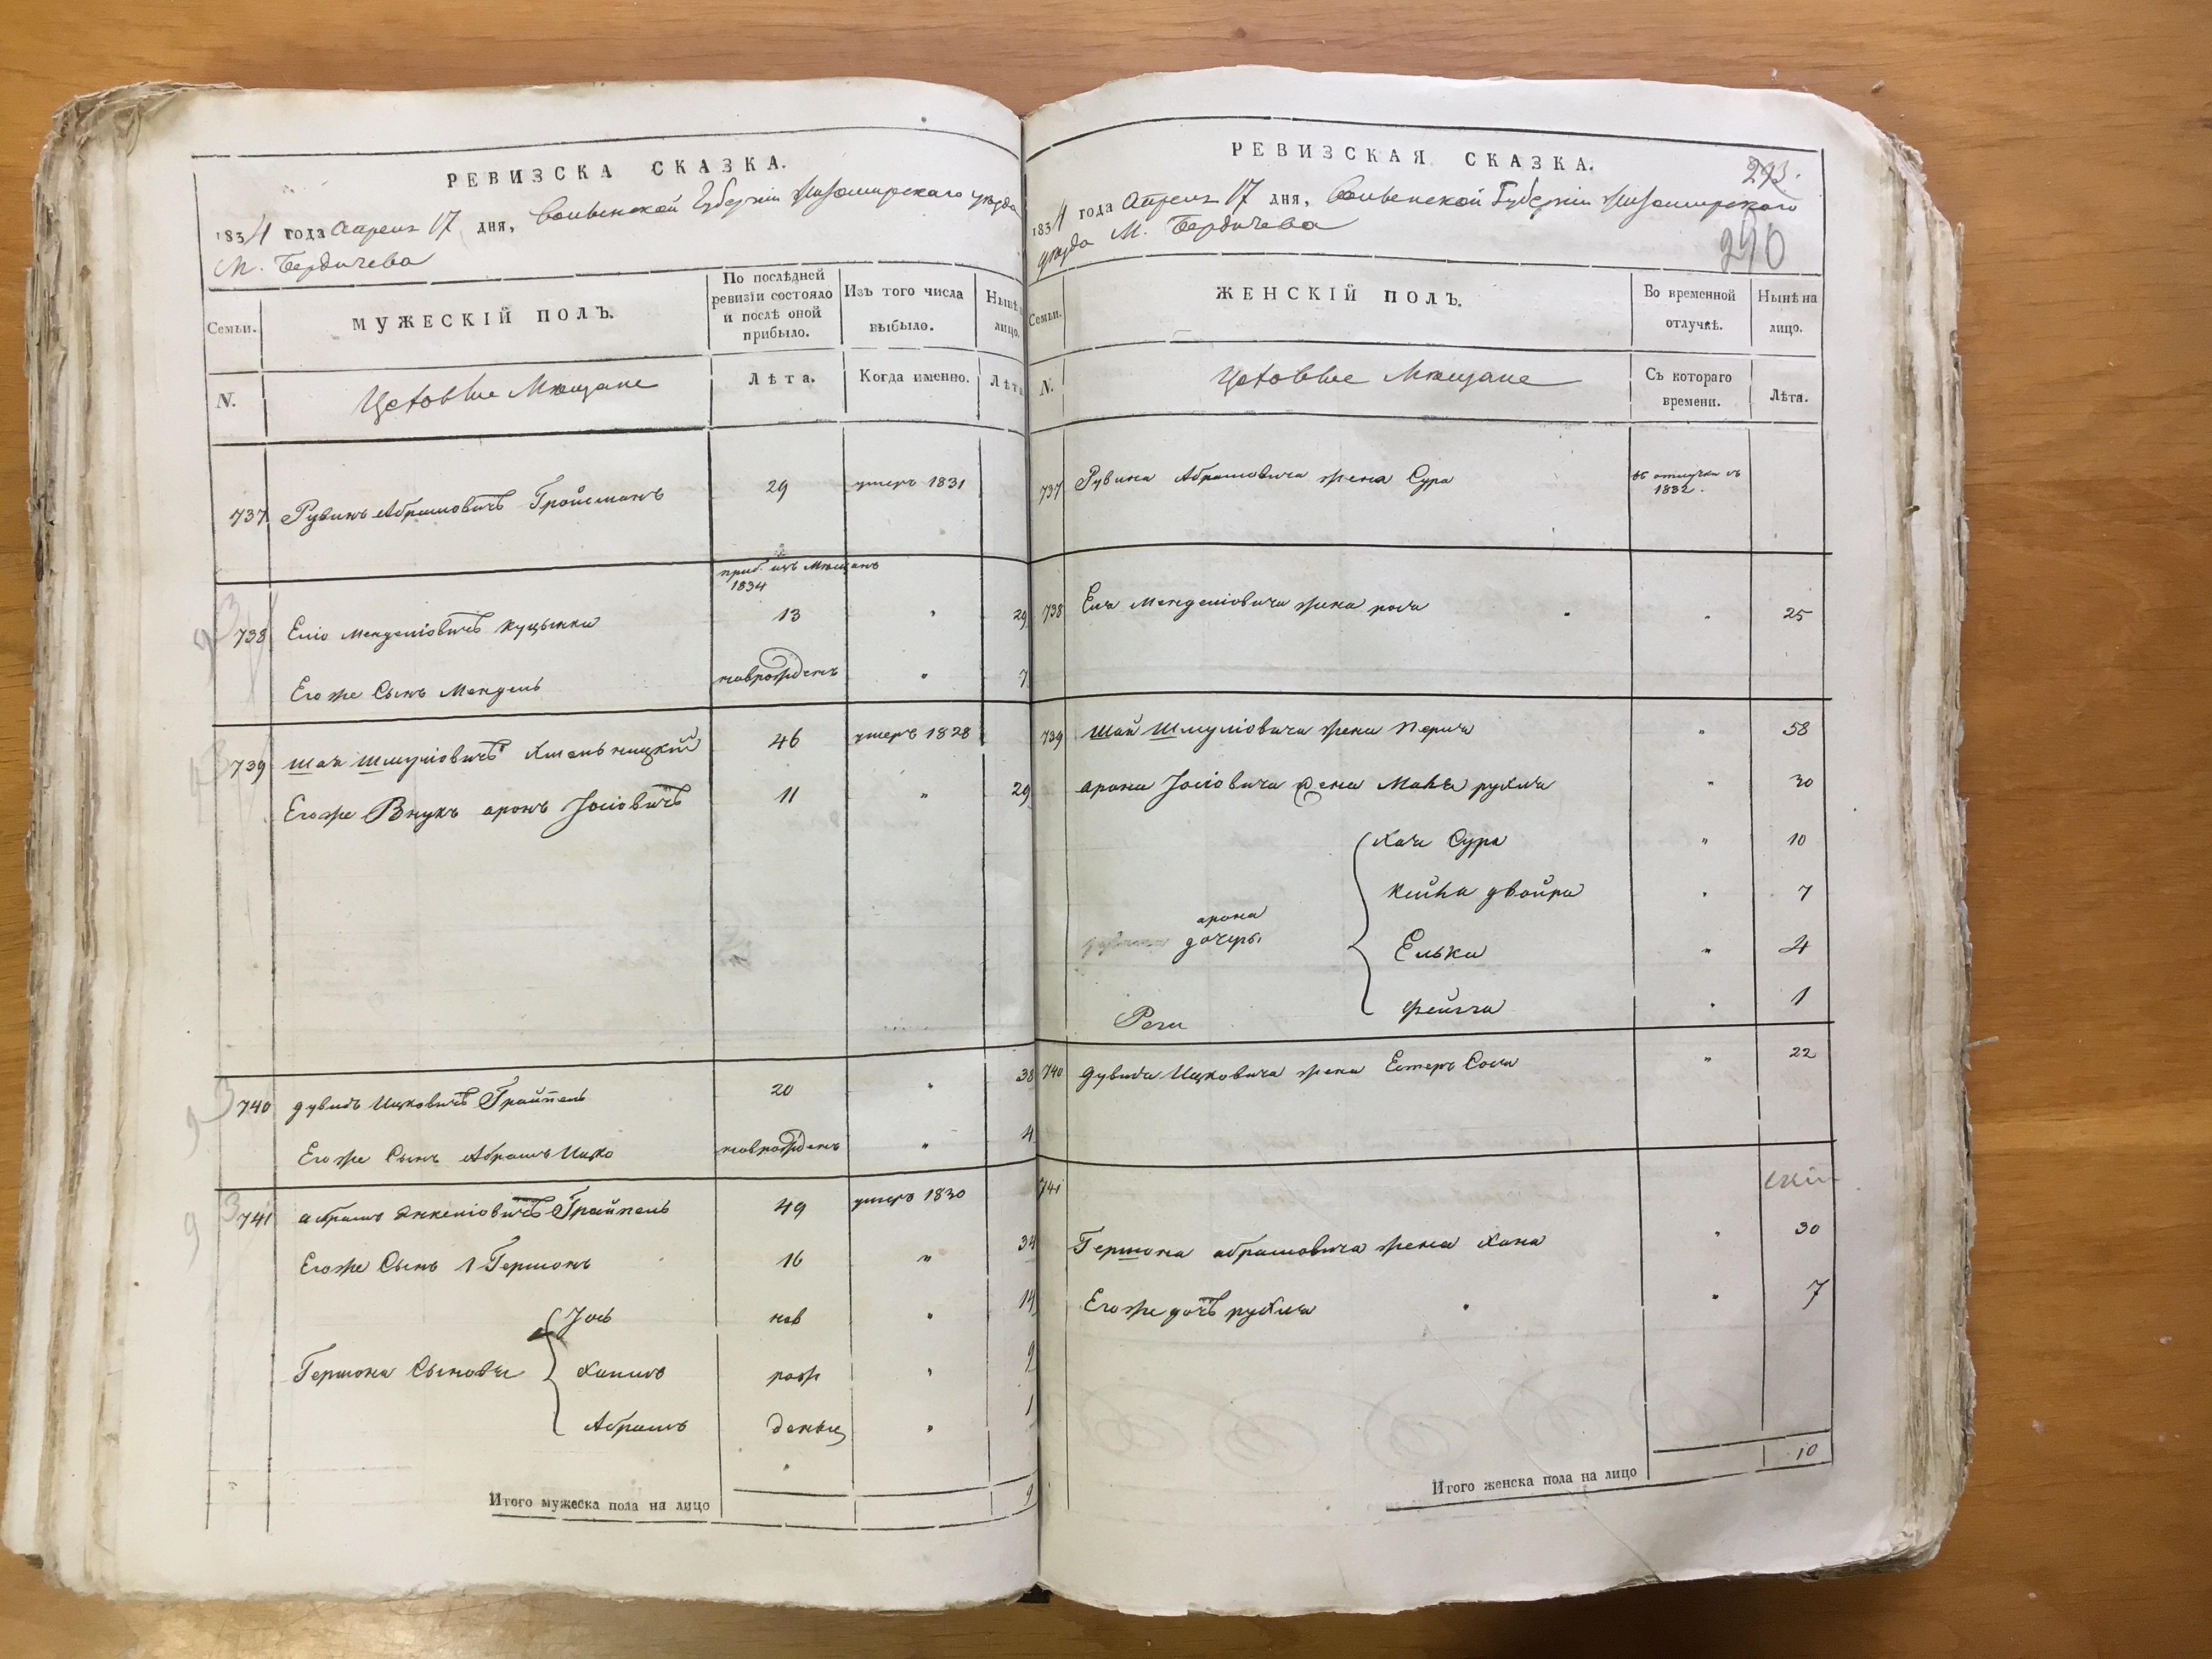 РЕВИЗСКА СКАЗКА.
1834 года Апреля 17 дня, Волынской Губернии Житомирскаго уезда
М. Бердичева
Семьи.
МУЖЕСКІЙ ПОЛЪ.
По послѣдней ревизіи состояло и послѣ оной прибыло.
Изъ того числа выбыло.
Нынѣ лицо.
N.
Цеховые Мещане
Лѣта.
Когда именно.
Лѣта
737 Рувинъ Абрамовичъ Гройсманъ 29 умеръ 1831
приб. изъ Мещанъ
1834
738 Еліо Менделіовичъ Куцынки 13 " 29
Его же Сынъ Мендель новорожденъ " 7
739 Шая Шмуліовичъ Хмельницкій 46 умеръ 1828
Его же Внукъ Аронъ Іосіовичъ 11 " 29
740 Дувидъ Ицковичъ Трайпель 20 " 38
Его же Сынъ Абрамъ Ицко новорожденъ " 4
741 Абрамъ Янкеліовичъ Трайпель 49 умеръ 1830
Его же Сынъ 1 Гершонъ 16 " 34
Іось нов " 14
Гершона Сыновья Хаимъ рож " 9
Абрамъ дены " 1
Итого мужеска пола на лицо 9
РЕВИЗСКАЯ СКАЗКА.
293.
1834 года Апреля 17 дня, Волынской Губерніи Житомирскаго
уезда М. Бердичева
290
Семьи.
ЖЕНСКІЙ ПОЛЪ.
Во временной отлучкѣ.
Нынѣ на лицо.
N.
Цеховые Мещане
Съ котораго времени.
Лѣта.
737 Рувина Абрамовича жена Сура въ отлучки съ
1832.
738 Еля Менделіовича жена роза " 25
739 Шай Шмуліовича жена Перля " 58
Арона Іосіовича жена Маня рухля " 30
Хая Сура " 10
Кейна двойра " 7
арона
дочеры
Елька " 4
Фейга " 1
740 Дувида Ицковича жена Естеръ Сося " 22
741
Гершона абрамовича жена Хана " 30
Его же дочь рухля " 7
Итого женска пола на лицо 10